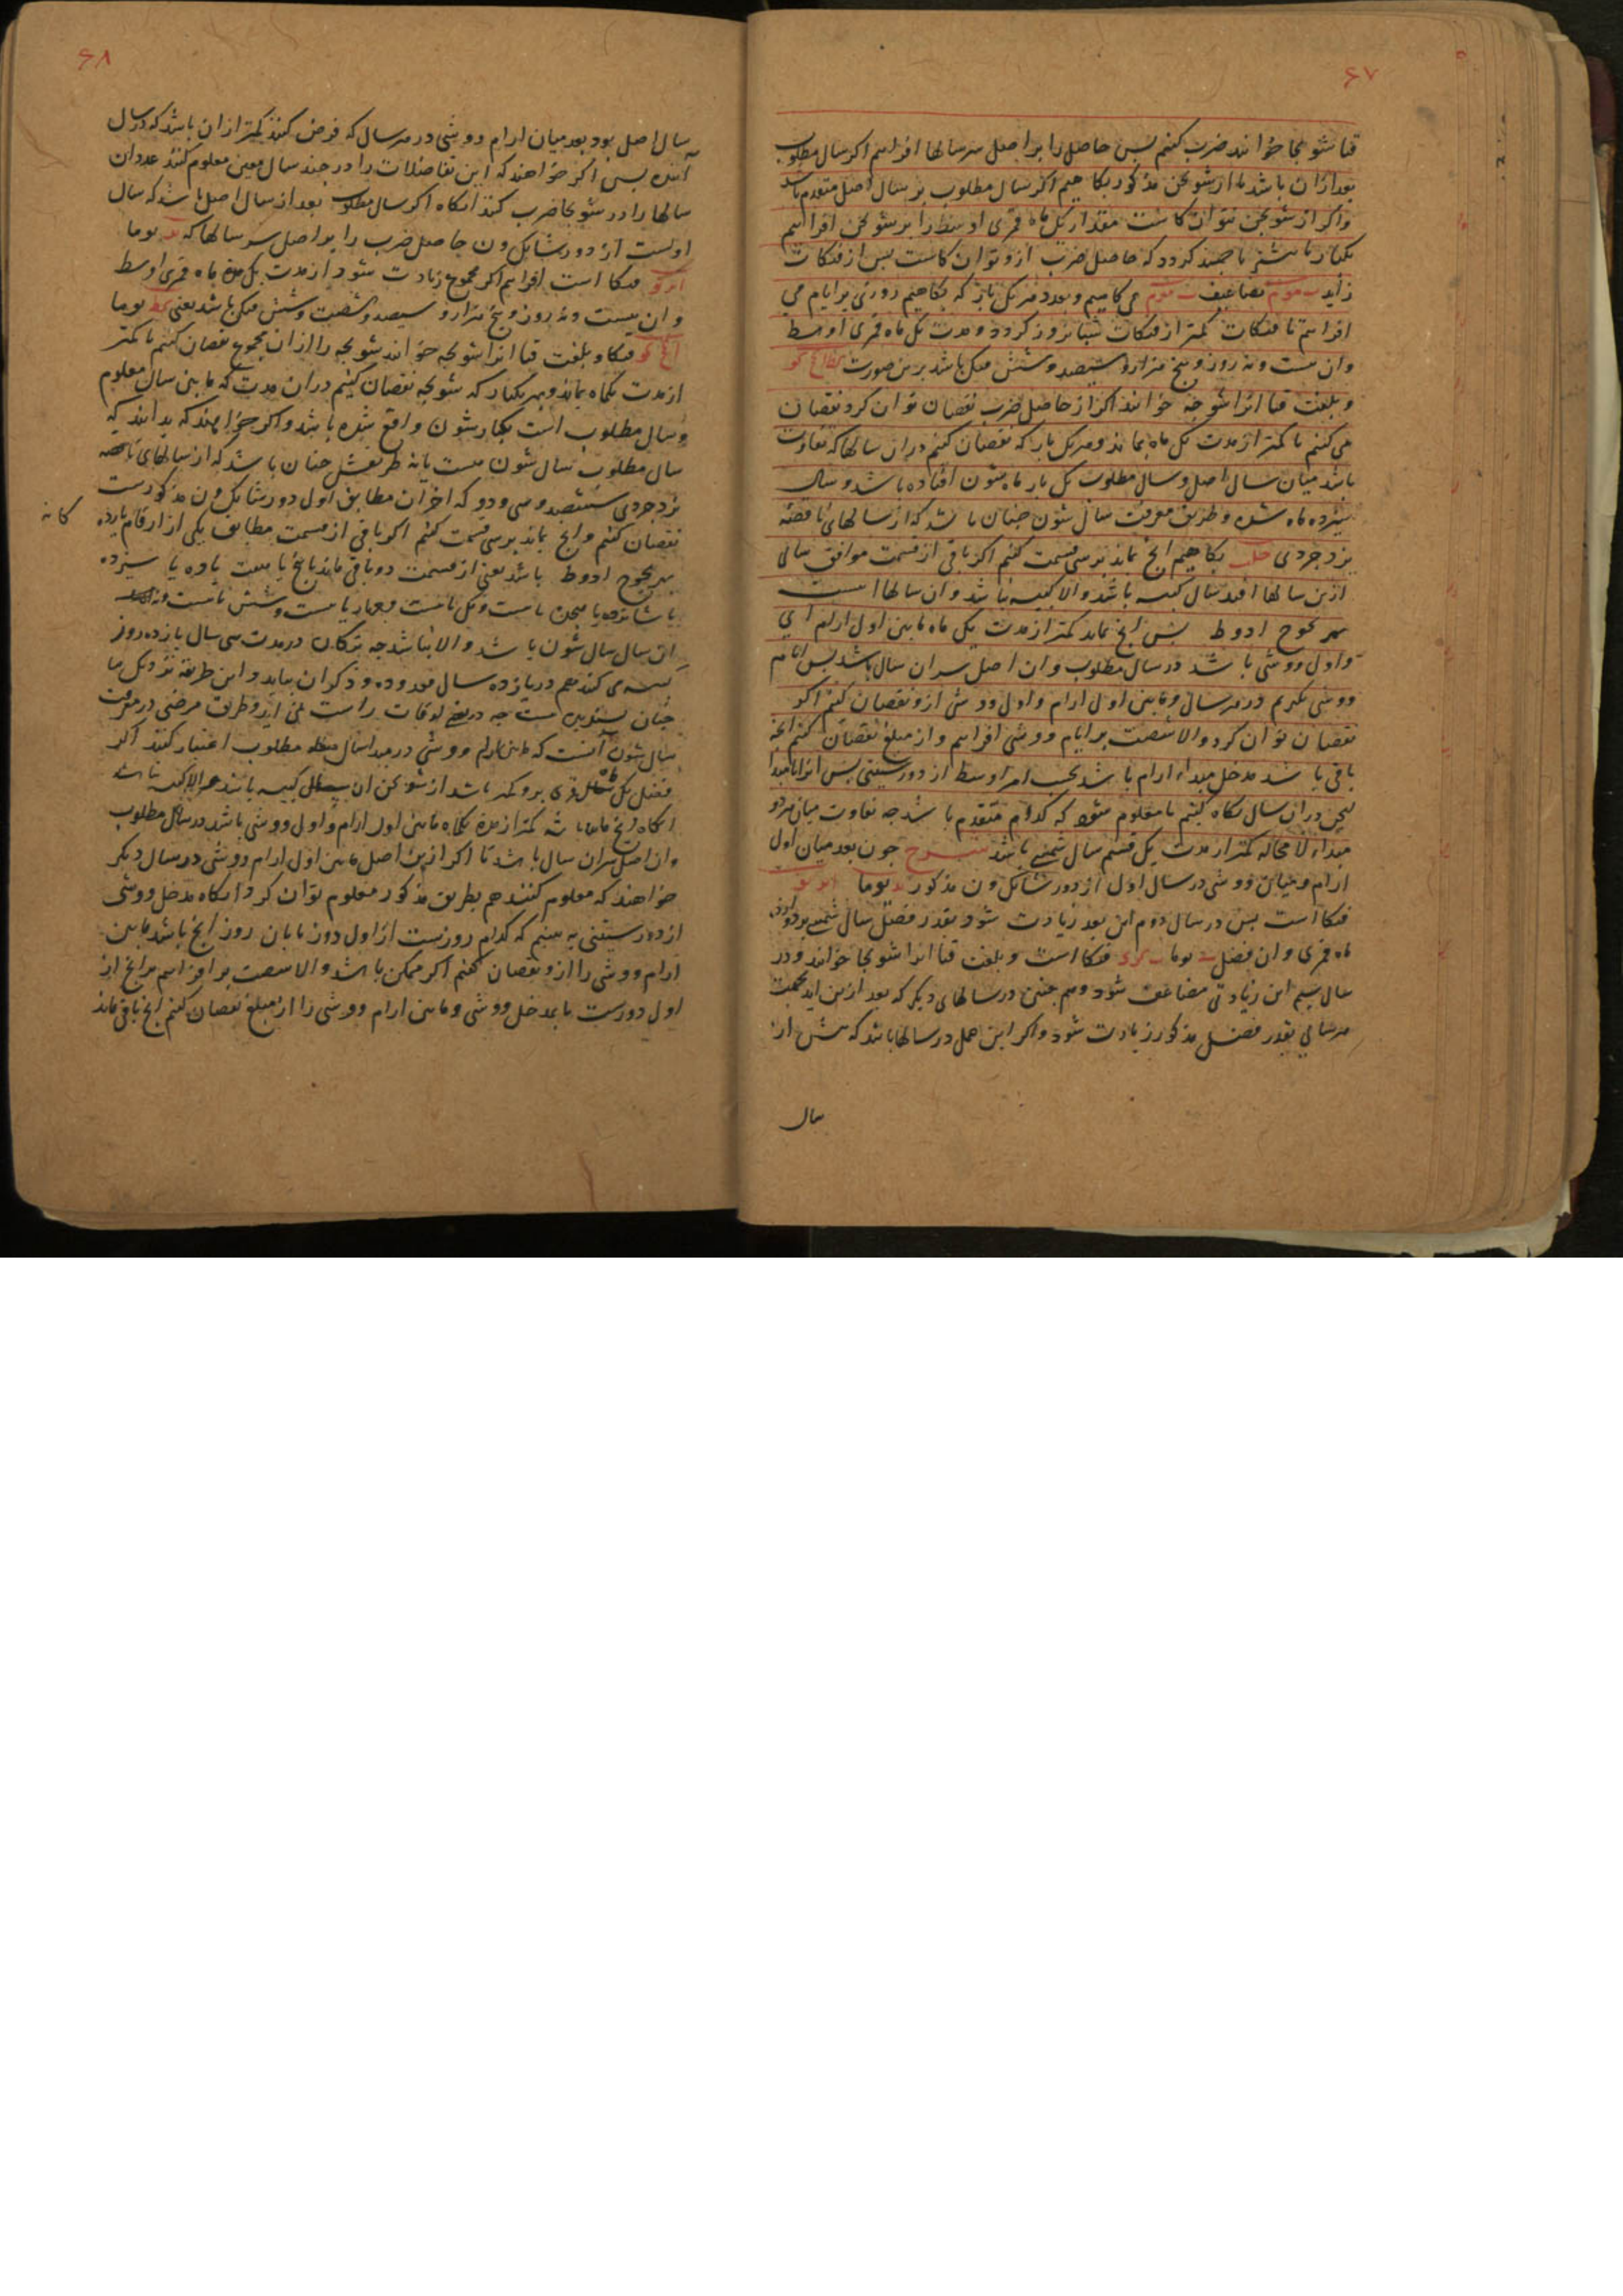 ۶۷
قتا شونجا خوانند ضرب کنیم پس حاصل را بر اصل سر سالها افزاییم اکر سال مطلوب
بعد ازان باشد یا از شونجن مذکور بکاهیم اکر سال مطلوب بر سال اصل متقدم باشد
واکر از شونجن نتوان کاست مقدار یک ماه قمری اوسط را بر شونجن افزاییم
یکبار یا بیشتر تا چند کردد که حاصل ضرب ازو توان کاست پس از فنکات
زاید مضاعف می کاهیم و بعدد هر یک بار که بکاهیم روزی بر ایام می
افزاییم تا فنکات کمتر از فنکات شبانروز کردد و مدت یک ماه قمری اوسط
وان بیست ونه روز و پنج هزار و سیصد و شش فنک باشد برین صورت
و بلغت قتا انرا شونجه خوانند اکر از حاصل ضرب نقصان توان کرد نقصان
می کنیم تا کمتر از مدت یک ماه بماند و هر یک بار که نقصان کنیم دران سالها که تفاوت
باشد میان سال اصل و سال مطلوب یک بار ماه شون افتاده باشد و سال
سیزده ماه شده و طریق معرفت سال شون چنان باشد که از سالهای ناقصه
یزدجردی خلب بکاهیم انچ بماند بر سی قسمت کنیم اکر باقی از قسمت موافق سالی
ازین سالها افتد سال کبیسه باشد والا کبیسه نباشد وان سالها اینست
بهر یحوح ادوط پس انچ بماند کمتر از مدت یک ماه مابین اول ارام ای
واول ووشی باشد در سال مطلوب وان اصل سر ان سال باشد پس ایام
ووشی بکیریم در هر سال و مابین اول ارام واول ووشی ازو نقصان کنیم اکر
نقصان توان کرد والا شصت بر ایام ووشی افزاییم واز مبلغ نقصان کنیم انچه
باقی باشد مدخل مبداء ارام باشد بحسب امر اوسط از دور ستینی پس انرا با مبدا
لیجن دران سال نکاه کنیم تا معلوم شود که کدام متقدم باشد چه تفاوت میان هر دو
مبداء لا محاله کمتر از مدت یک قسم سال شمسی باشد شرح چون بعد میان اول
ارام و میان ووشی در سال اول از دور شانکون مذکور یوما
فنکا است پس در سال دوم این بعد زیادت شود بقدر فضل سال شمسی بر دوازده
ماه قمری وان فضل یوما فنکا است و بلغت قتا انرا شونجا خوانند ودر
سال سیم این زیادتی مضاعف شود وهم چنین در سالهای دیکر که بعد ازین اید بحسب
هر سالی بقدر فضل مذکور زیادت شود واکر این عمل در سالها باشد که پیش از
سال
۶۸
سال اصل بود بعد میان ارام ووشی در هر سال که فرض کنند کمتر ازان باشد که در سال
آینده پس اکر خواهند که این تفاضلات را در چند سال معین معلوم کنند عدد ان
سالها را در شونجا ضرب کنند انکاه اکر سال مطلوب بعد از سال اصل باشد که سال
اولست از دور شانکون حاصل ضرب را بر اصل سر سالها که یوما
فنکا است افزاییم اکر مجموع زیادت شود از مدت یک ماه قمری اوسط
وان بیست ونه روز و پنج هزار و سیصد و شش فنک باشد یعنی کط یوما
فنکا و بلغت قتا انرا شونجه خوانند شونجه را ازان مجموع نقصان کنیم تا کمتر
از مدت یکماه بماند و بهر یکبار که شونجه نقصان کنیم دران مدت که مابین سال معلوم
وسال مطلوب است یکبار شون واقع شده باشد واکر خواهند که بدانند که
سال مطلوب سال شون هست یا نه طریقش چنان باشد که از سالهای ناقصه
یزدجردی ششصد و سی و دو که اخر ان مطابق اول دور شانکون مذکورست
نقصان کنیم وانچ بماند بر سی قسمت کنیم اکر باقی از قسمت مطابق یکی از ارقام یازده
کانه
بهر یحوح ادوط باشد یعنی از قسمت دو باقی ماند یا پنج یا هفت یا ده یا سیزده
یا شانزده یا هجده یا بیست ویک یا بیست و چهار یا بیست وشش یا بیست ونه
ان سال سال شون باشد والا نباشد چه ترکان در مدت سی سال یازده روز
کبیسه می کنند هم در یازده سال معدوده و ذکر ان بیاید و این طریقه نزدیک ما
چنان مستقیم نیست چه در بعضی اوقات راست نمی اید و طریق مرضی در معرفت
سال شون آنست که مابین ارام ووشی در مبدا سال مطلوب اعتبار کنند اکر
فضل یک سال قمری برو کمتر باشد از شونجن ان سال کبیسه باشد والا کبیسه نباشد
انکاه انچ باقی باشد کمتر از مدت یکماه مابین اول ارام واول ووشی باشد در سال مطلوب
وان اصل سر ان سال باشد تا اکر ازین اصل مابین اول ارام ووشی در سال دیکر
خواهند که معلوم کنند هم بطریق مذکور معلوم توان کرد وانکاه مدخل ووشی
از دور ستینی به بینیم که کدام روزیست از اول دور تا بان روز انچ باشد مابین
ارام ووشی را ازو نقصان کنیم اکر ممکن باشد والا شصت بر افزاییم بر انچ از
اول دورست تا بمدخل ووشی و مابین ارام ووشی را از مبلغ نقصان کنیم انچ باقی ماند